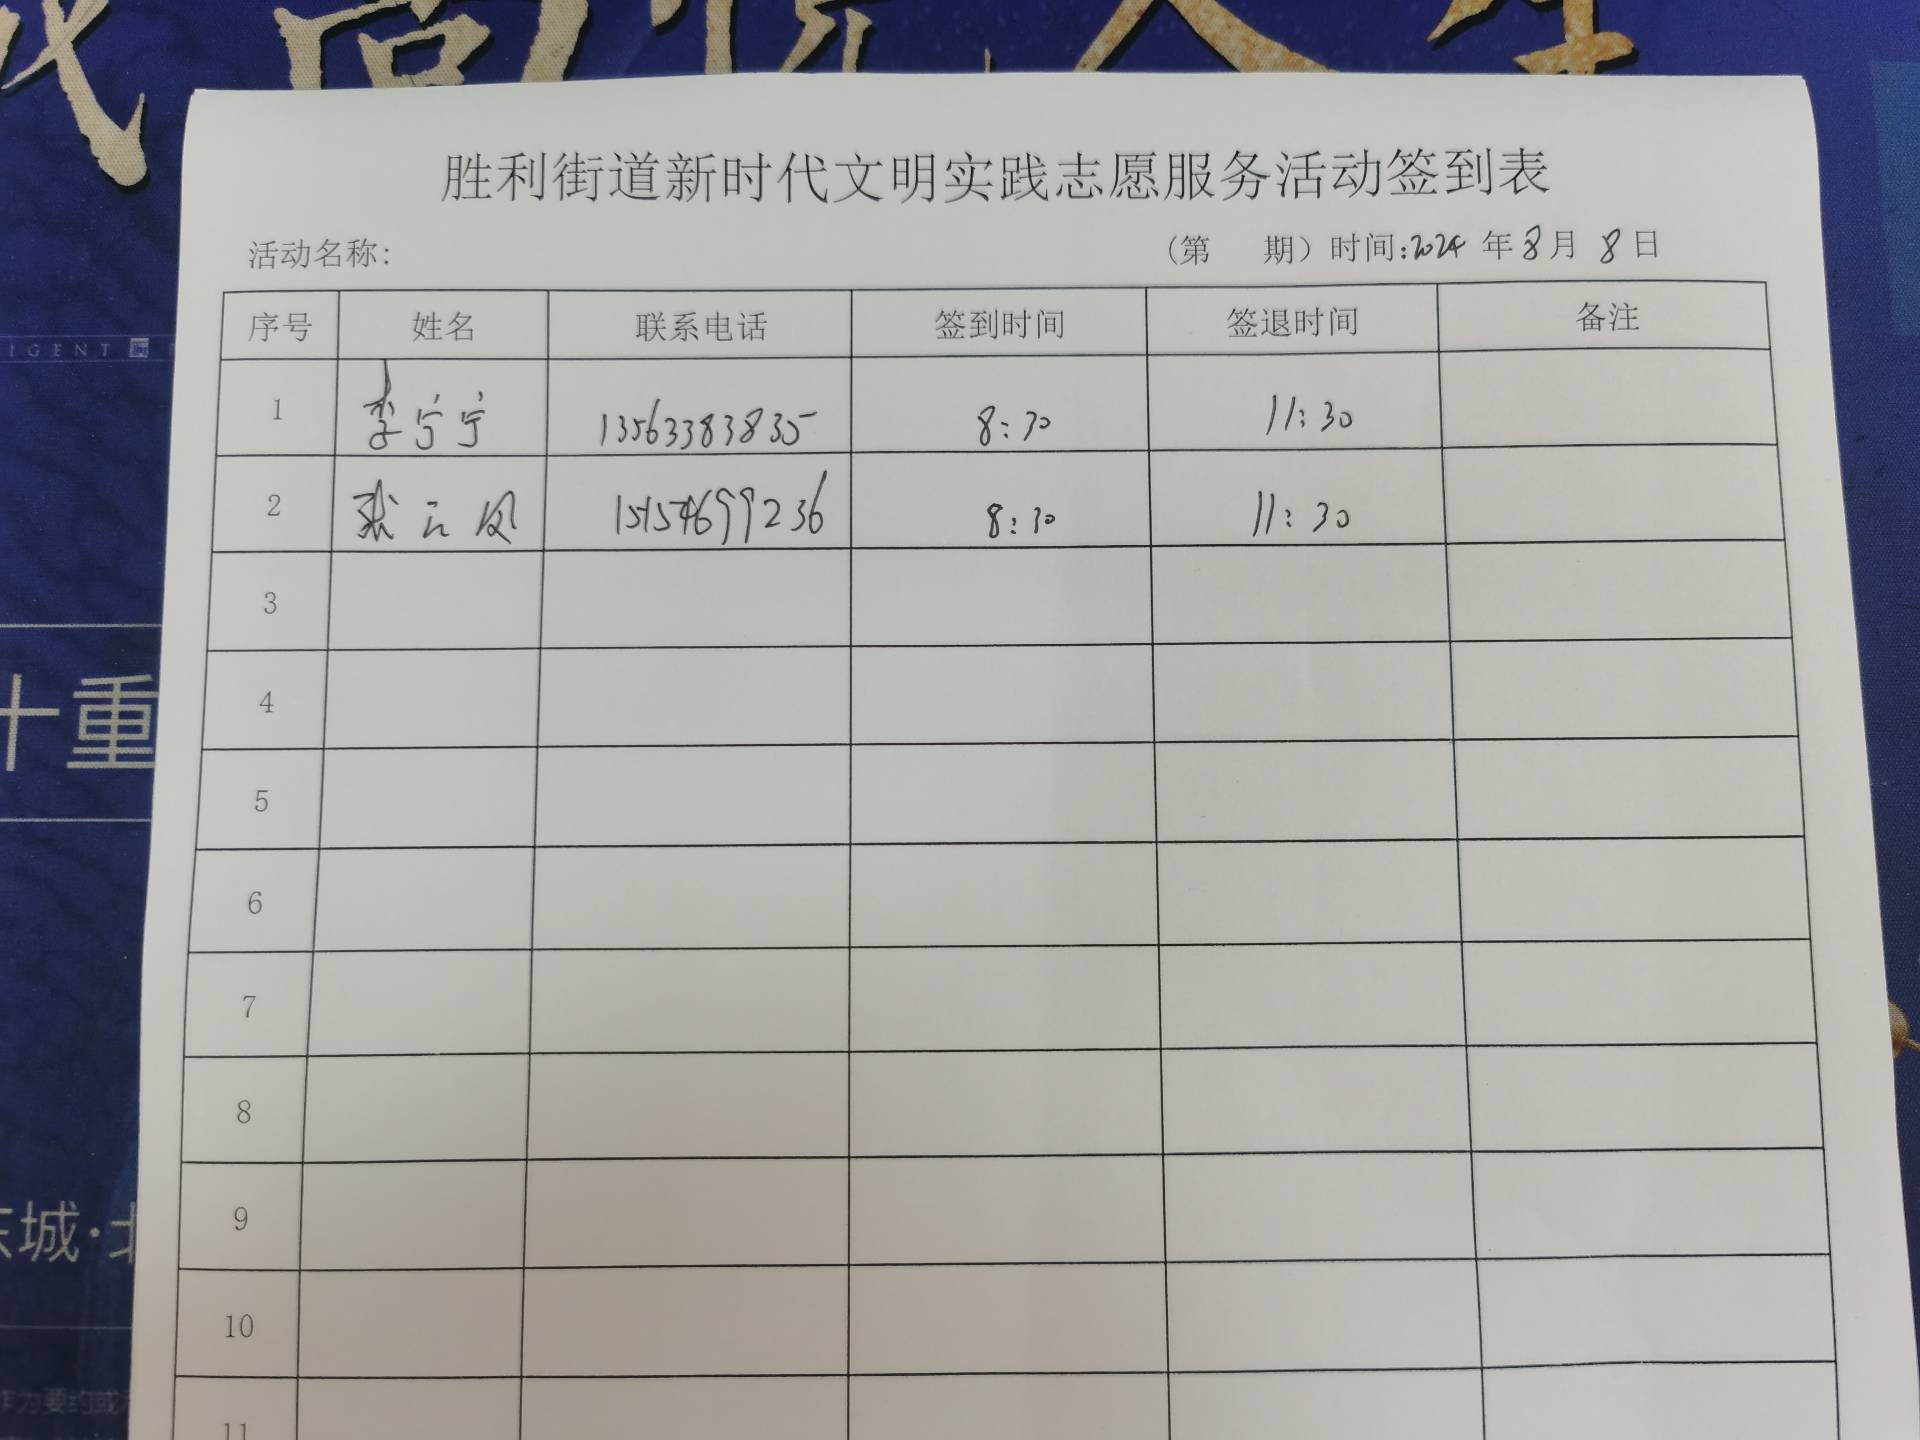 尚悦人生
IGENT
胜利街道新时代文明实践志愿服务活动签到表
活动名称: (第 期) 时间:2024 年 8 月 8 日
序号 姓名 联系电话 签到时间 签退时间 备注
1 李宁宁 13563383835 8:30 11:30
2 张云凤 15154699236 8:30 11:30
3
4
十重
5
6
7
8
9
东城·北
10
作为要约或
11